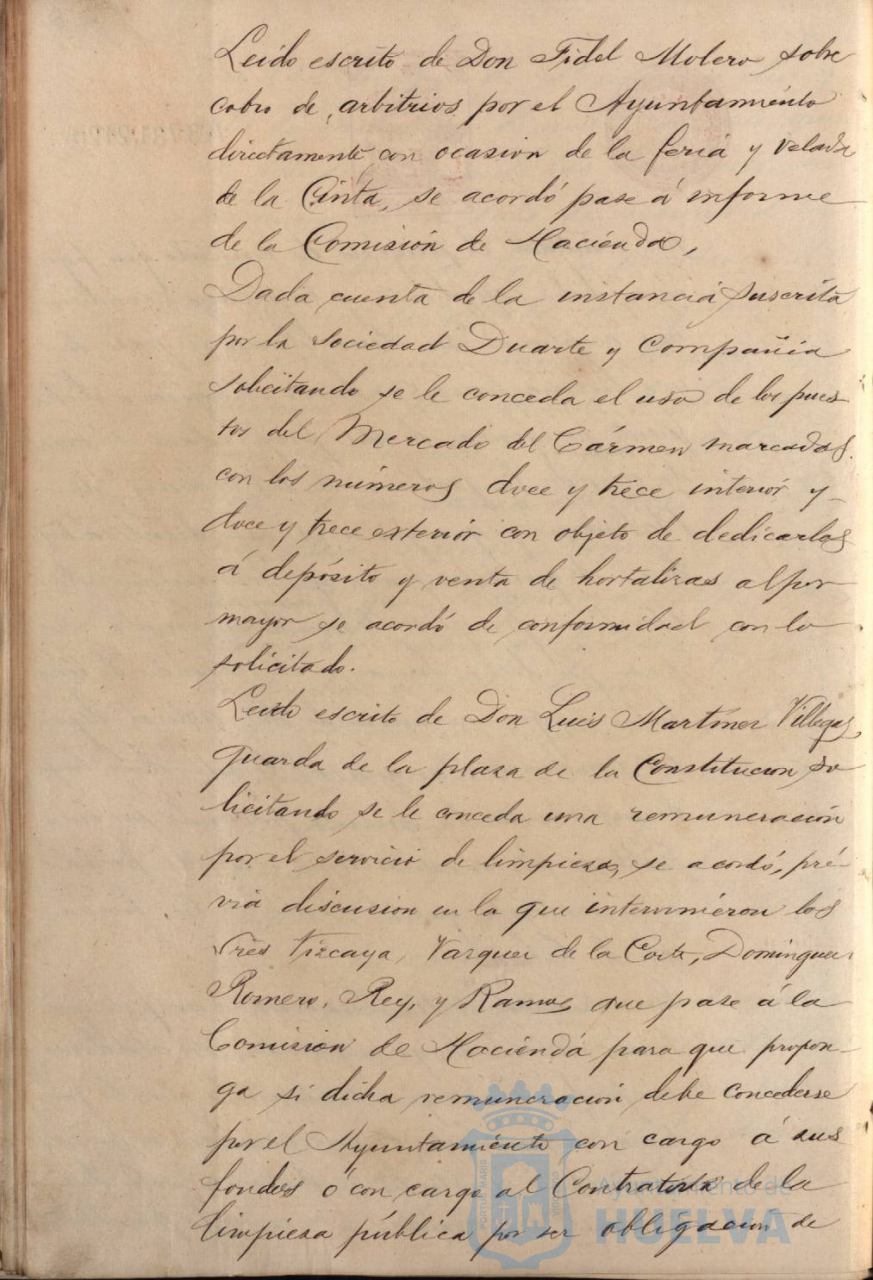 Leido escrito de Don Fidel Molero, sobre
cobro de arbitrios por el Ayuntamiento
directamente con ocasion de la feria y velada
de la Cinta, se acordó pase á informe
de la Comisión de Hacienda,
Dada cuenta de la instancia suscrita
por la Sociedad Duarte y Compañia
solicitando se le conceda el uso de los pues
tos del Mercado del Cármen marcados
con los números doce y trece interior y
doce y trece exterior con objeto de dedicarlos
á depósito y venta de hortalizas al por
mayor se acordó de conformidad con lo
solicitado.
Leido escrito de Don Luis Martinez Villegas,
guarda de la plaza de la Constitucion so
licitando se le conceda una remuneración
por el servicio de limpieza, se acordó, pré-
via discusion en la que intervinieron los
Sres Vizcaya, Vazquez de la Corte, Dominguez
Romero, Rey, y Ramos que pase á la
Comision de Hacienda para que propon-
ga si dicha remuneración debe concederse
por el Ayuntamiento con cargo á sus
fondos ó con cargo al Contratista de la
limpieza pública por ser obligacion de
Ayuntamiento de
HUELVA